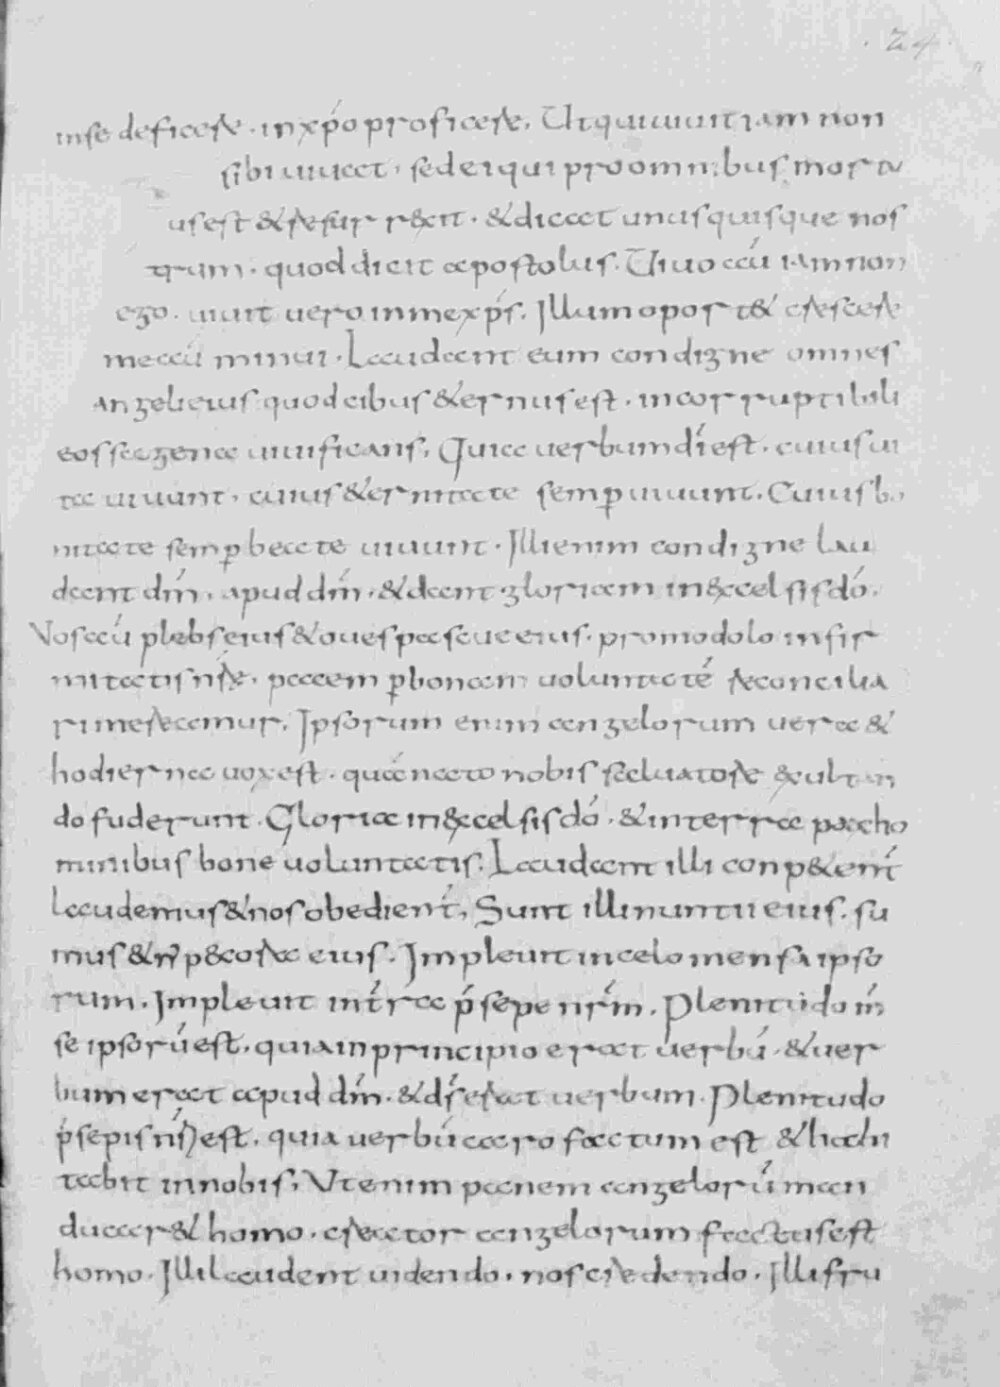 24
inse deficere · in xp̄o proficere, Ut qui uiuit iam non
sibi uiuat · sed ei qui pro omnibus mortu
us est & resurr&it · & dicat unusquisque nos
trum · quod dicit apostolus. Uiuo aū iam non
ego · uiuit uero in me xp̄s. Illum oport& crescere
me aū minui · Laudant eum condigne omnes
angeli eius quod cibus &ernus est · incorruptibili
eos sagena uiuificans, Quia uerbum dī est · cuius ui
ta uiuunt · cuius &ernitate semp̲ uiuunt. Cuius bo
nitate semp̲ beate uiuunt · Illi enim condigne lau
dant dm̄ · apud dm̄ · & dant gloriam in &celsis dō ·
Nos aū plebs eius & oues pascue eius · pro modolo infir
mitatis nr̄e · pacem p̲ bonam uoluntatē reconcilia
ri mereamur, Ipsorum enim angelorum uera &
hodierna uox est · quā nato nobis saluatore &ultan
do fuderunt · Gloria in &celsis dō · & in terra pax ho
minibus bone uoluntatis. Laudant illi conp&ent̄
laudemus & nos obedient̄, Sunt illi nuntii eius · su
mus & nr̄ p&cora eius. Impleuit in celo mensa ipso
rum. Impleuit in tr̄ra p̄sepe nr̄m. Plenitudo m̄
se ipsorū est · quia in principio erat uerbū · & uer
bum erat apud dm̄ · & dr̄ erat uerbum. Plenitudo
p̄sepis nr̄i est, quia uerbū caro factum est & habi
tabit in nobis, Ut enim panem angelorū man
ducar& homo · creator angelorum factus est
homo · Illi laudent uidendo · nos credendo · Illi fru